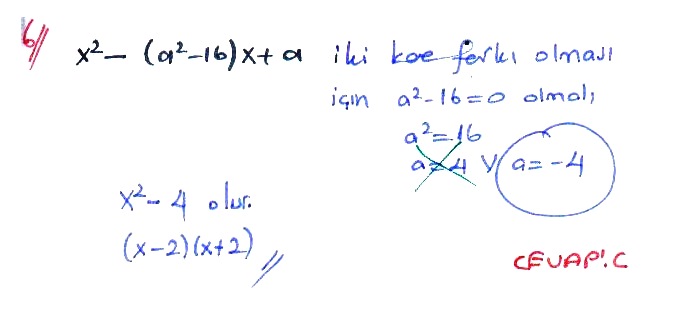 6// x²− (a²−16)x+a iki kare farkı olması
için a²-16=0 olmalı
a²=16
a=4 V a=-4
x²-4 olur.
(x-2)(x+2)//
CEVAP: C